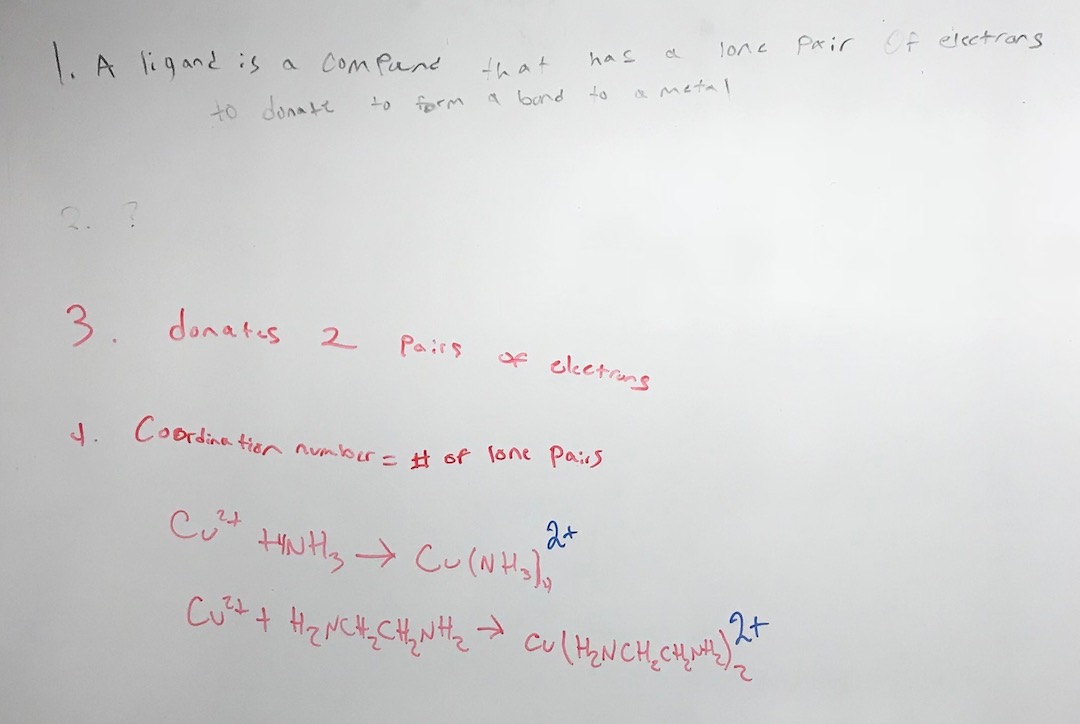 1. A ligand is a compound that has a lone pair of electrons
to donate to form a bond to a metal
2. ?
3. donates 2 pairs of electrons
4. Coordination number = # of lone pairs
Cu²⁺ +4NH₃ → Cu(NH₃)₄²⁺
Cu²⁺ + H₂NCH₂CH₂NH₂ → Cu(H₂NCH₂CH₂NH₂)₂²⁺